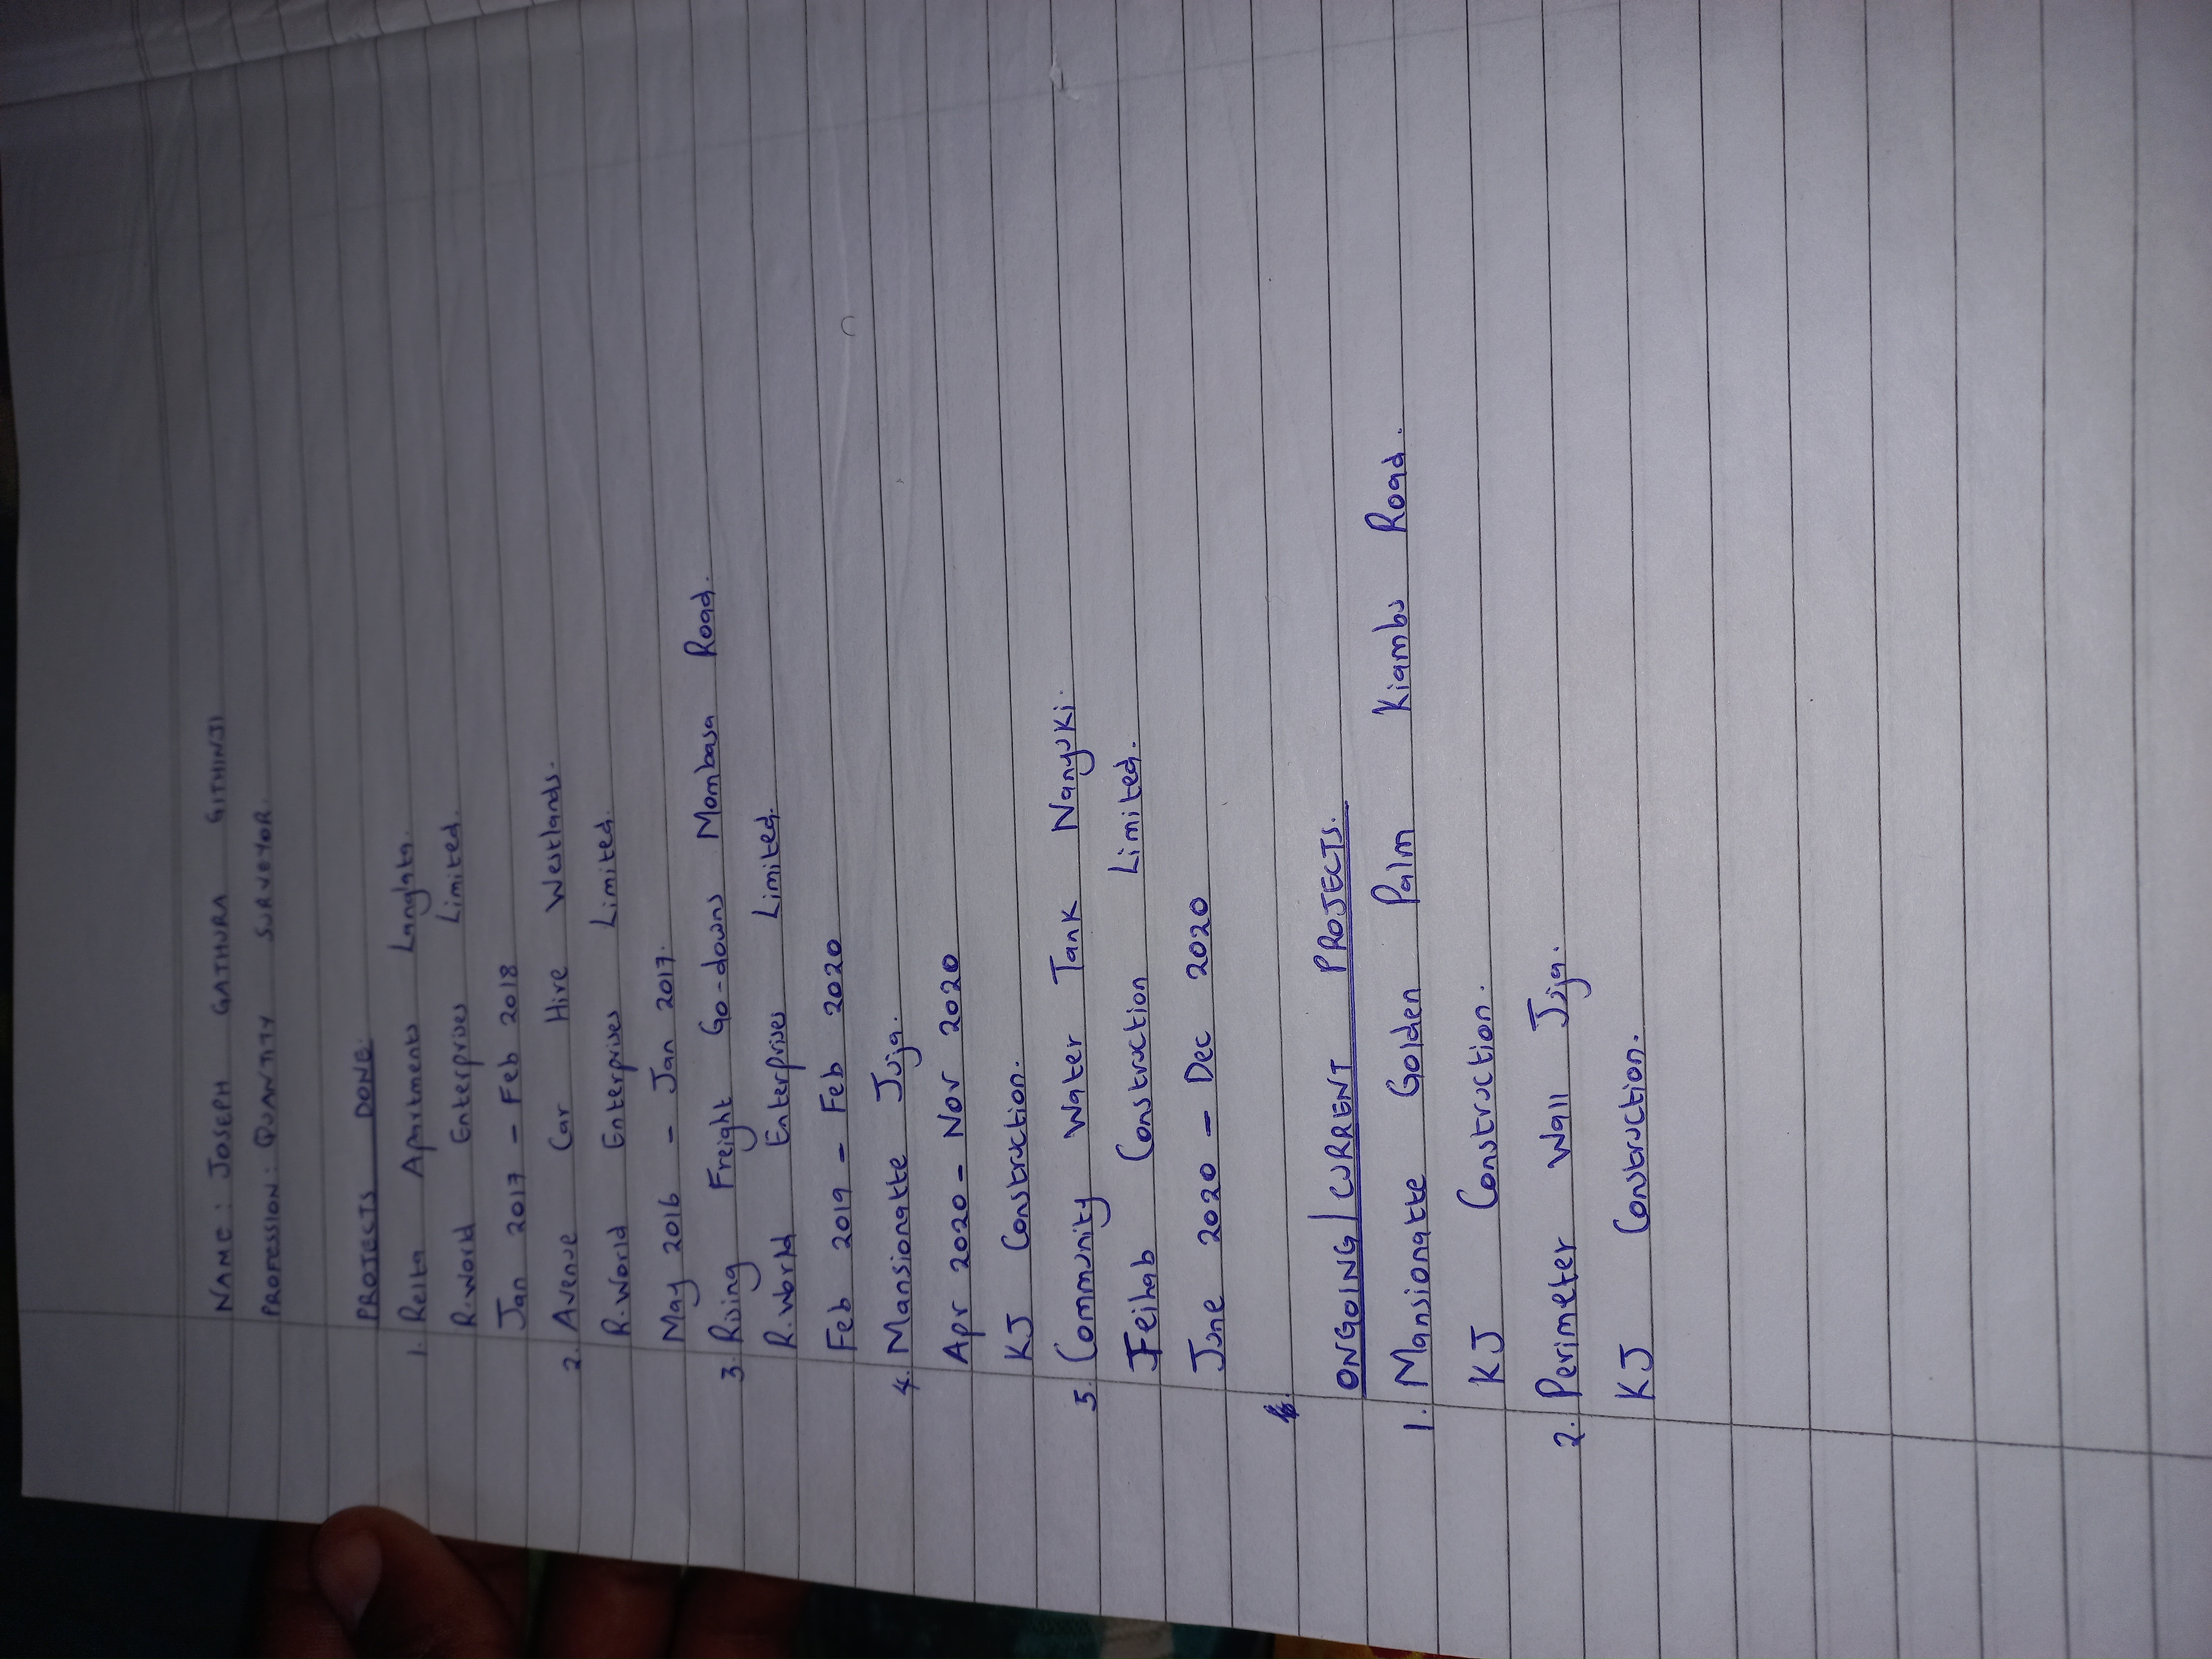 NAME: JOSEPH GATHURA GITHINJI
PROFESSION: QUANTITY SURVEYOR.
PROJECTS DONE.
1. Relta Apartments Lang'ata.
R.World Enterprises Limited.
Jan 2017 - Feb 2018
2. Avenue Car Hire Westlands.
R.World Enterprises Limited.
May 2016 - Jan 2017.
3. Rising Freight Go-downs Mombasa Road.
R.World Enterprises Limited.
Feb 2019 - Feb 2020
4. Mansionatte Juja.
Apr 2020 - Nov 2020
KJ Construction.
5. Community Water Tank Nanyuki.
Feihab Construction Limited.
June 2020 - Dec 2020
ONGOING/CURRENT PROJECTS.
1. Mansionatte Golden Palm Kiambu Road.
KJ Construction.
2. Perimeter Wall Juja.
KJ Construction.